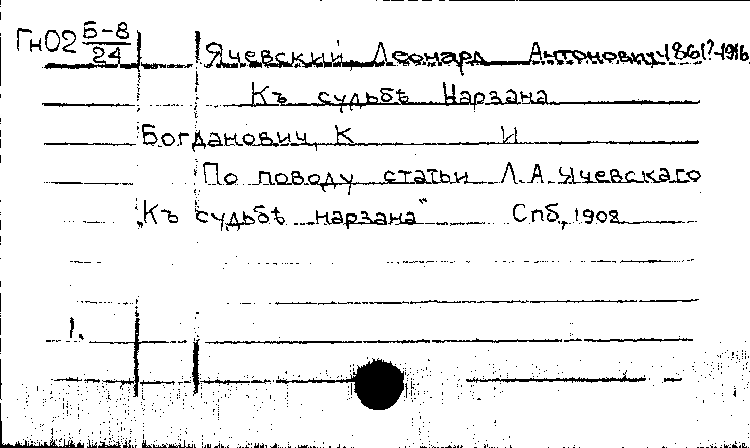 Гн02 Б-8/24
Ячевский, Леонард Антонович, 1861?-1916
Къ судьбѣ Нарзана
Богданович, К И
По поводу статьи Л.А.Ячевскаго
"Къ судьбѣ нарзана" Спб, 1908
1.